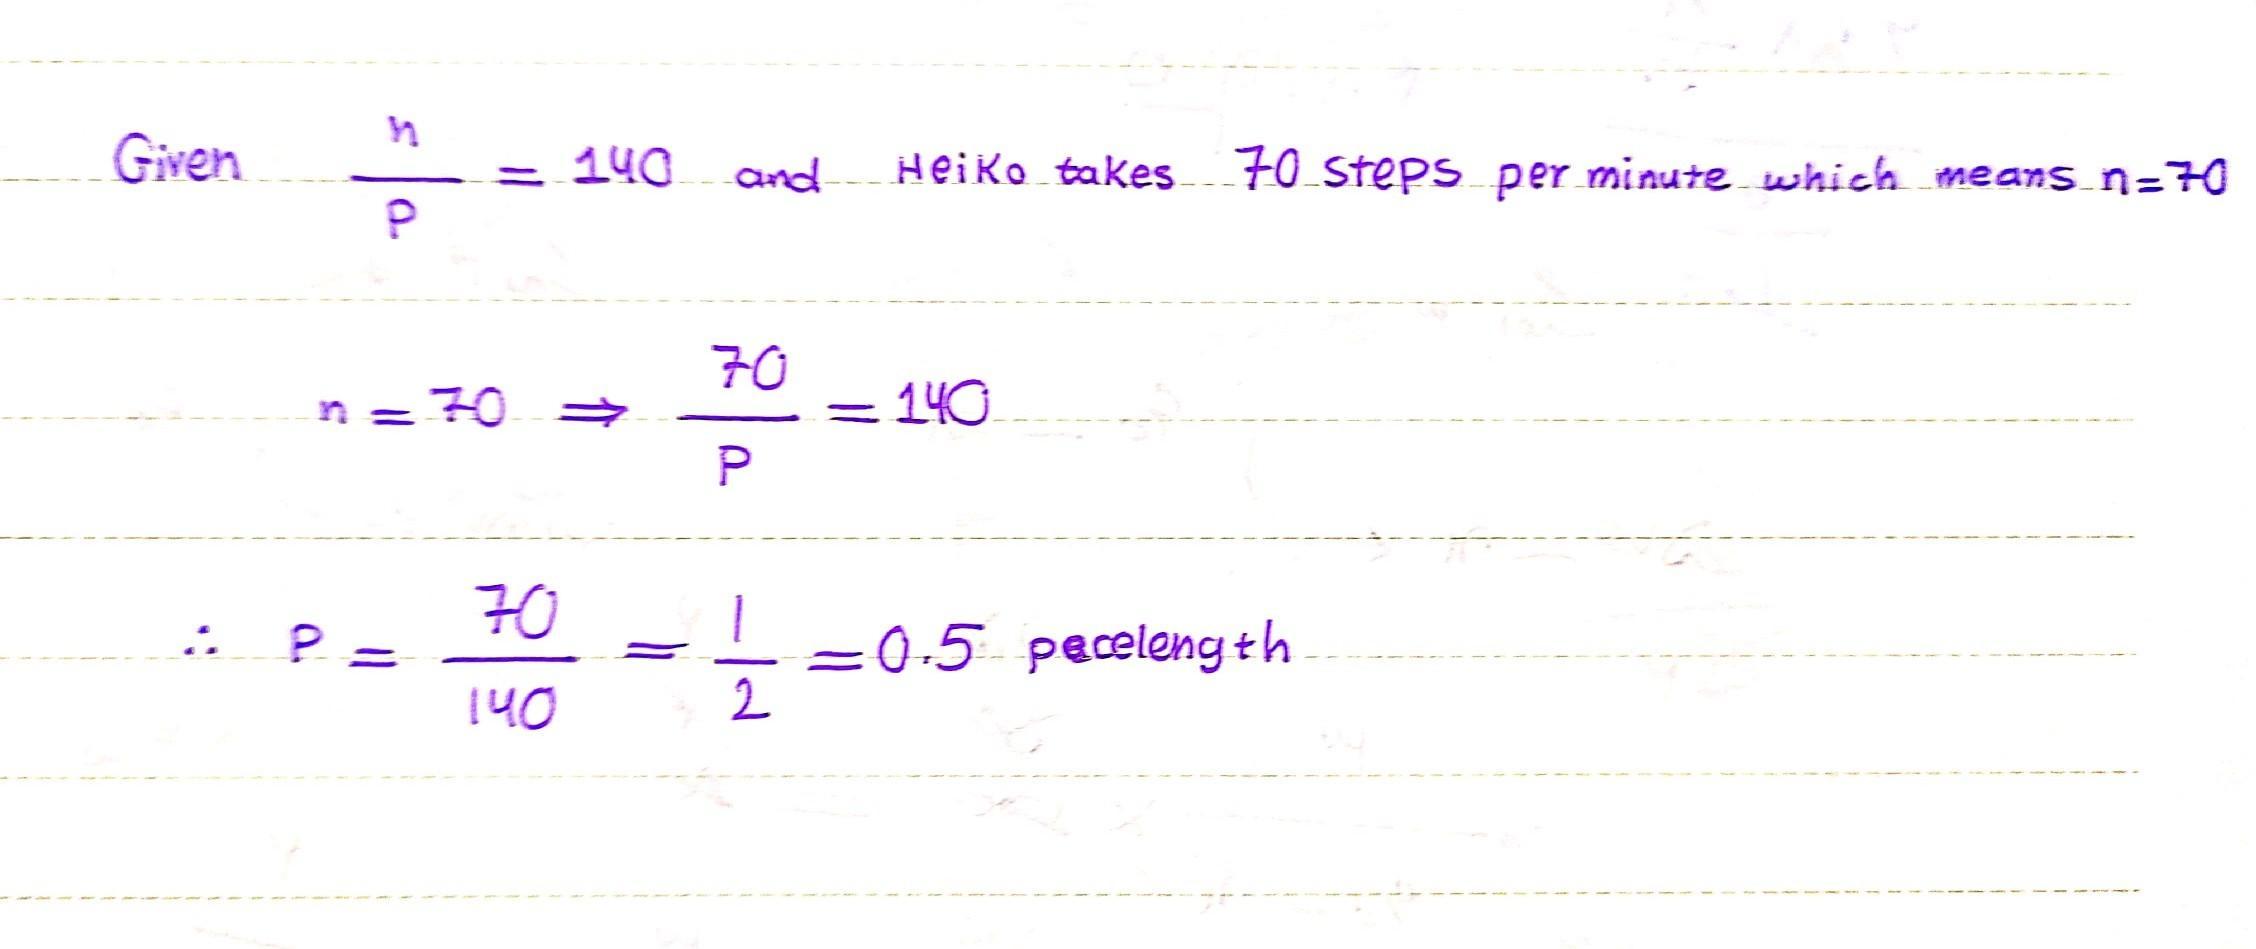 Given n/P = 140 and Heiko takes 70 steps per minute which means n=70
n = 70 ⇒ 70/P = 140
∴ P = 70/140 = 1/2 = 0.5 pacelength